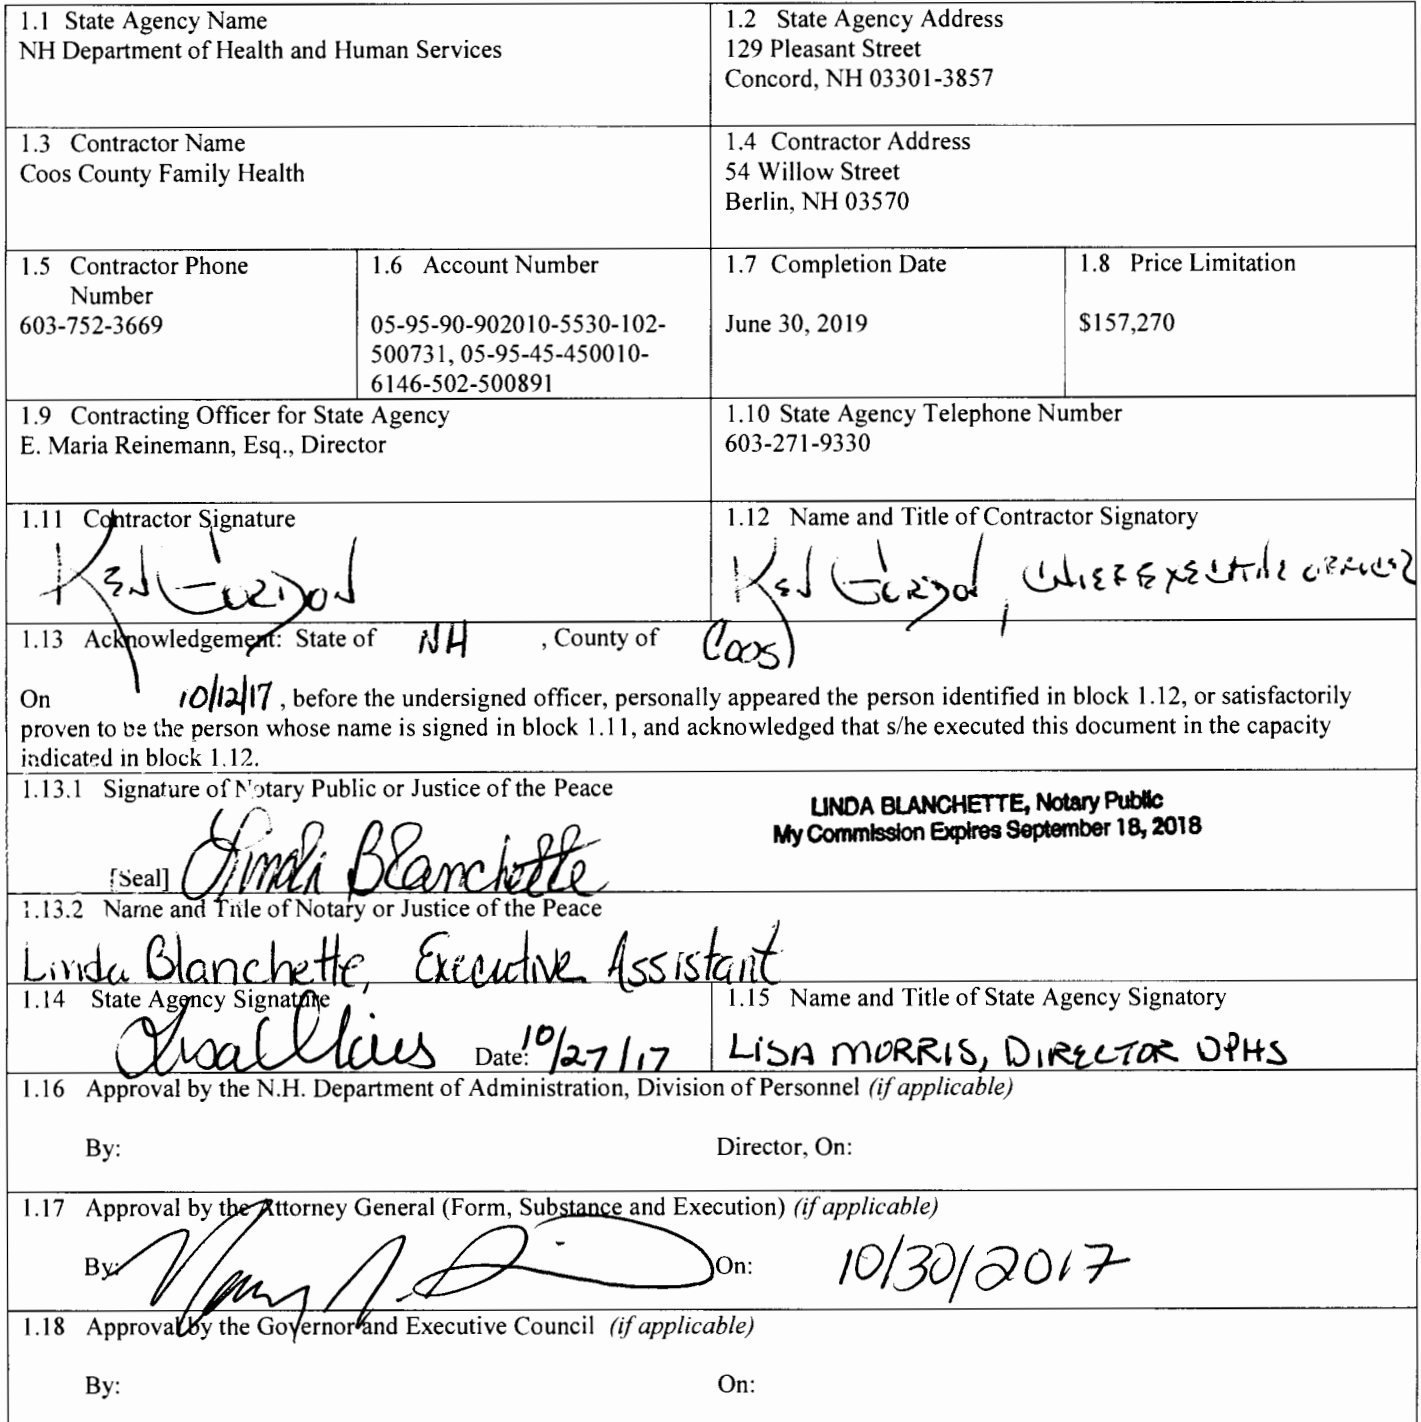 1.1 State Agency Name
NH Department of Health and Human Services
1.2 State Agency Address
129 Pleasant Street
Concord, NH 03301-3857
1.3 Contractor Name
Coos County Family Health
1.4 Contractor Address
54 Willow Street
Berlin, NH 03570
1.5 Contractor Phone
Number
603-752-3669
1.6 Account Number
05-95-90-902010-5530-102-
500731, 05-95-45-450010-
6146-502-500891
1.7 Completion Date
June 30, 2019
1.8 Price Limitation
$157,270
1.9 Contracting Officer for State Agency
E. Maria Reinemann, Esq., Director
1.10 State Agency Telephone Number
603-271-9330
1.11 Contractor Signature
Ken Gordon
1.12 Name and Title of Contractor Signatory
Ken Gordon, Chief Executive Officer
1.13 Acknowledgement: State of NH , County of Coos
On 10/12/17 , before the undersigned officer, personally appeared the person identified in block 1.12, or satisfactorily
proven to be the person whose name is signed in block 1.11, and acknowledged that s/he executed this document in the capacity
indicated in block 1.12.
1.13.1 Signature of Notary Public or Justice of the Peace
LINDA BLANCHETTE, Notary Public
My Commission Expires September 18, 2018
[Seal] Linda Blanchette
1.13.2 Name and Title of Notary or Justice of the Peace
Linda Blanchette, Executive Assistant
1.14 State Agency Signature
Date: 10/27/17
1.15 Name and Title of State Agency Signatory
LISA MORRIS, DIRECTOR DPHS
1.16 Approval by the N.H. Department of Administration, Division of Personnel (if applicable)
By: Director, On:
1.17 Approval by the Attorney General (Form, Substance and Execution) (if applicable)
By: On: 10/30/2017
1.18 Approval by the Governor and Executive Council (if applicable)
By: On: